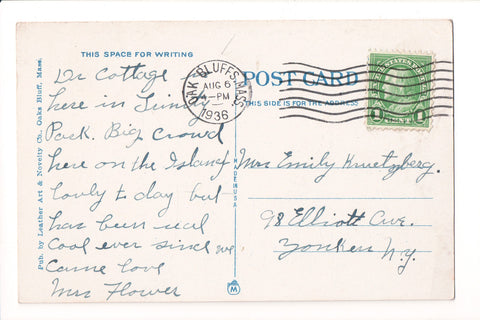 THIS SPACE FOR WRITING
Dr Cottage
here in Sunday
Park. Big crowd
here on the Island
lovly to day but
has been real
cool ever since we
came love
Mrs Flower
OAK BLUFFS, MASS.
AUG 6
PM
1936
POST CARD
THIS SIDE IS FOR THE ADDRESS
UNITED STATES POSTAGE
1 CENT 1
Mrs Emily Kruetzberg.
98 Elliott Ave.
Yonkers N.Y.
MADE IN U.S.A.
M
Pub. by Leather Art & Novelty Co. Oaks Bluff, Mass.